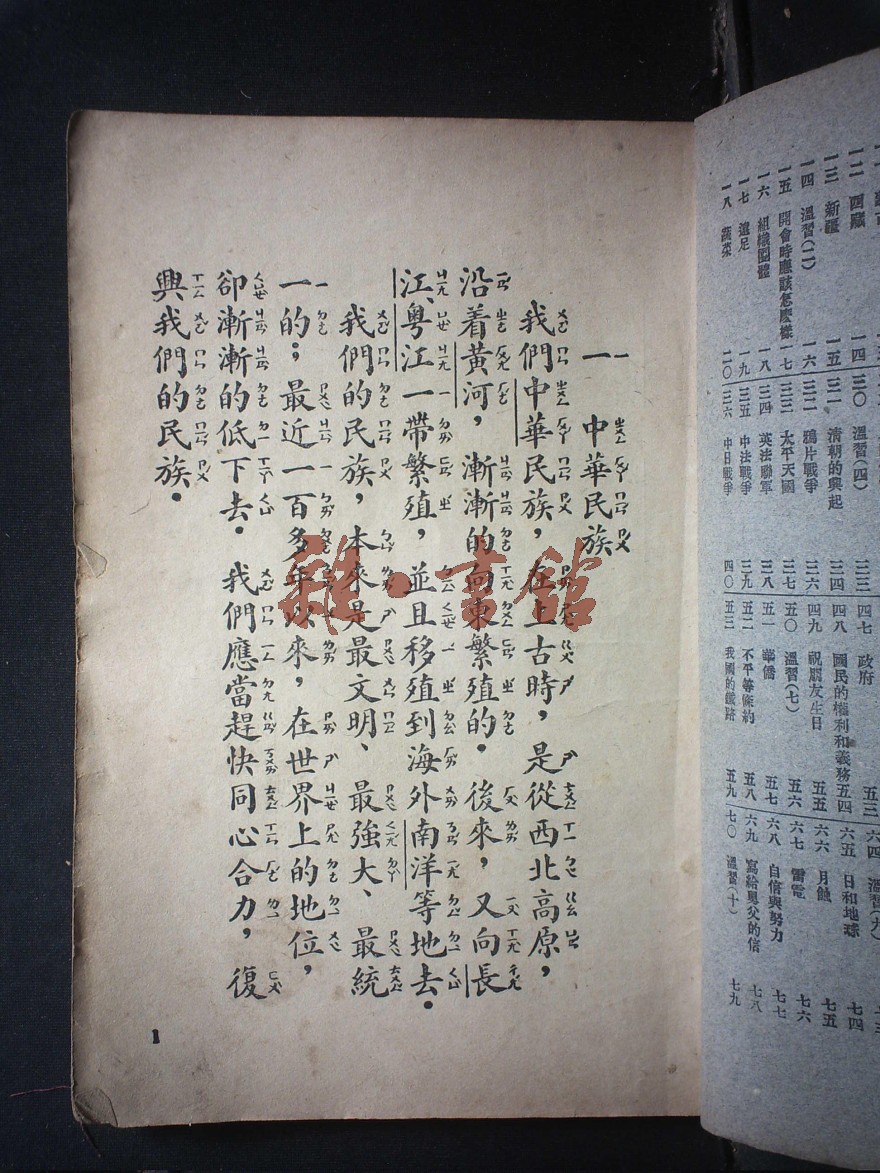 一二 西藏 一四
一三 新疆 一五
一四 溫習(二) 一六
一五 開會時應該怎麼樣 一七
一六 組織團體 一八
一七 遠足 一九
一八 蔬菜 二〇
三〇 溫習(四) 三三
三一 清朝的興起 三四
三二 鴉片戰爭 三六
三三 太平天國 三七
三四 英法聯軍 三八
三五 中法戰爭 三九
三六 中日戰爭 四〇
四七 政府 五三
四八 國民的權利和義務 五四
四九 祝朋友生日 五五
五〇 溫習(七) 五六
五一 華僑 五七
五二 不平等條約 五八
五三 我國的鐵路 五九
六四 溫習(九)
六五 日和地球 七四
六六 月蝕 七五
六七 雷電 七六
六八 自信與努力 七七
六九 寫給舅父的信 七八
七〇 溫習(十) 七九
一 中華民族
我們中華民族，在上古時，是從西北高原，
沿着黃河，漸漸的向東繁殖的。後來，又向長
江、粵江一帶繁殖，並且移殖到海外南洋等地去。
我們的民族，本來是最文明、最強大、最統
一的；最近一百多年以來，在世界上的地位，
卻漸漸的低下去。我們應當趕快同心合力，復
興我們的民族。
1
雅·書館